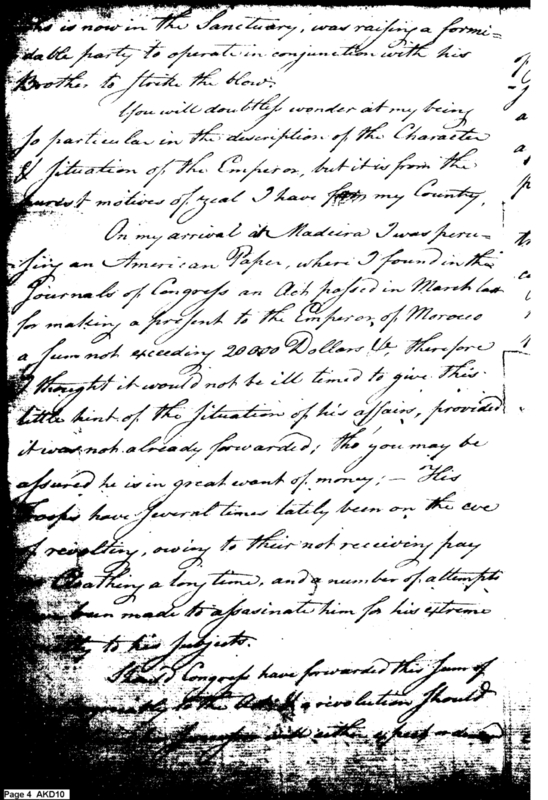 who is now in the Sanctuary, was raising a formi=
dable party to operate in conjunction with his
Brother to strike the blow.
You will doubtless wonder at my being
so particular in the description of the Character
& situation of the Emperor, but it is from the
purest motives of zeal I have my County,
On my arrival at Madeira I was peru=
sing an American Paper, where I found in the
Journals of Congress an Act passed in March last
for making a present to the Emperor of Morocco
a sum not exceeding 20000 Dollars &, therefore
I thought it would not be ill timed to give this
little hint of the situation of his affairs, provided
it was not already forwarded; tho' you may be
assured he is in great want of money; — His
Troops have several times lately been on the eve
of revolting, owing to their not receiving pay
Cloathing a long time, and a number of attempts
been made to assasinate him for his extreme
to his subjects.
Should Congress have forwarded this sum of
to the a revolution should
Successor will either expect
Page 4 AKD10